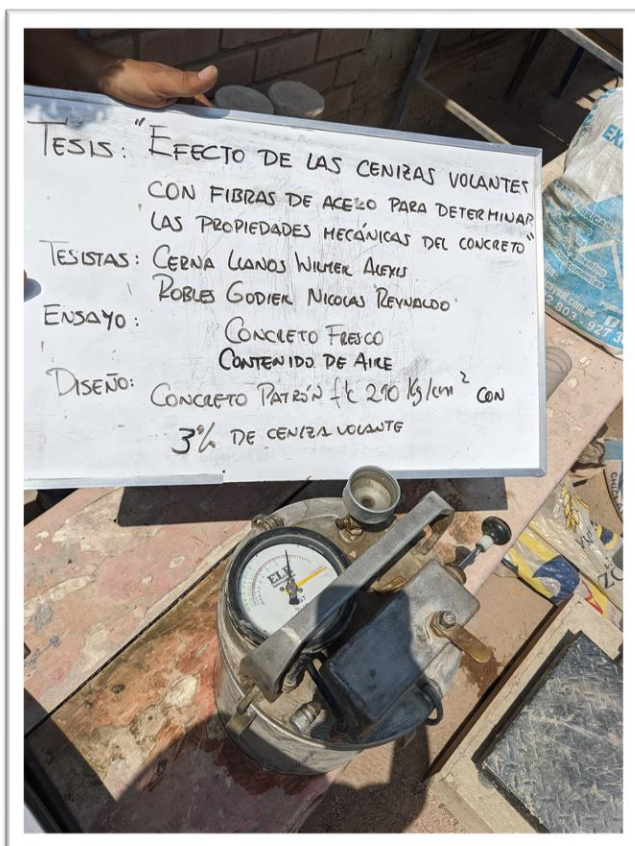 TESIS: "EFECTO DE LAS CENIZAS VOLANTES
CON FIBRAS DE ACERO PARA DETERMINAR
LAS PROPIEDADES MECÁNICAS DEL CONCRETO"
TESISTAS: CERNA LLANOS WILMER ALEXIS
ROBLES GODIER NICOLAS REYNALDO
ENSAYO: CONCRETO FRESCO
CONTENIDO DE AIRE
DISEÑO: CONCRETO PATRÓN f'c 210 Kg/cm² CON
3% DE CENIZA VOLANTE
ELE